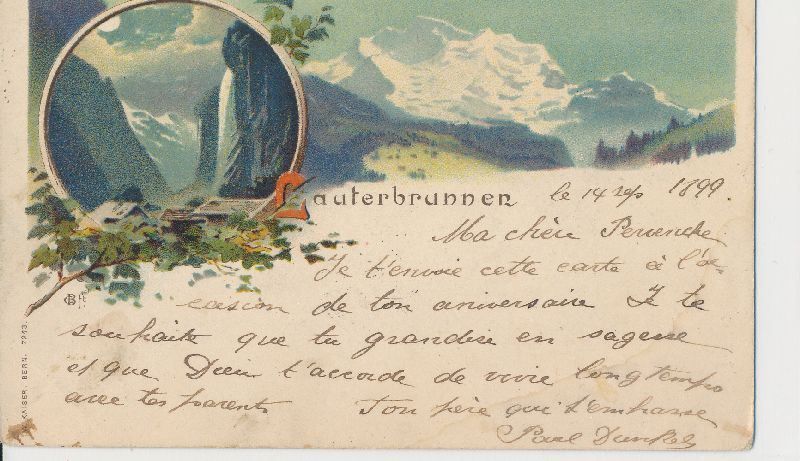 Lauterbrunnen le 14 sep 1899.
Ma chère Pervenche
Je t'envoie cette carte à l'oc-
casion de ton aniversaire Je te
souhaite que tu grandise en sagesse
et que Dieu t'accorde de vivre longtemps
avec tes parents Ton père qui t'embrasse
Paul
KAISER. BERN. 7243.